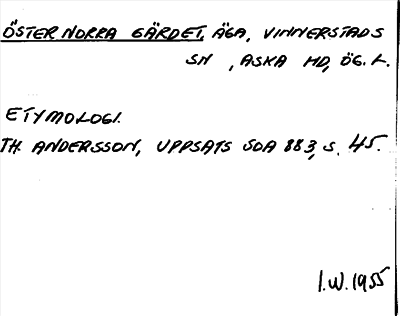 ÖSTER NORRA GÄRDET, ÄGA, VINNERSTADS
SN , ASKA HD, ÖG. L.
ETYMOLOGI.
TH. ANDERSSON, UPPSATS SOA 883, S. 45.
I.W. 1955